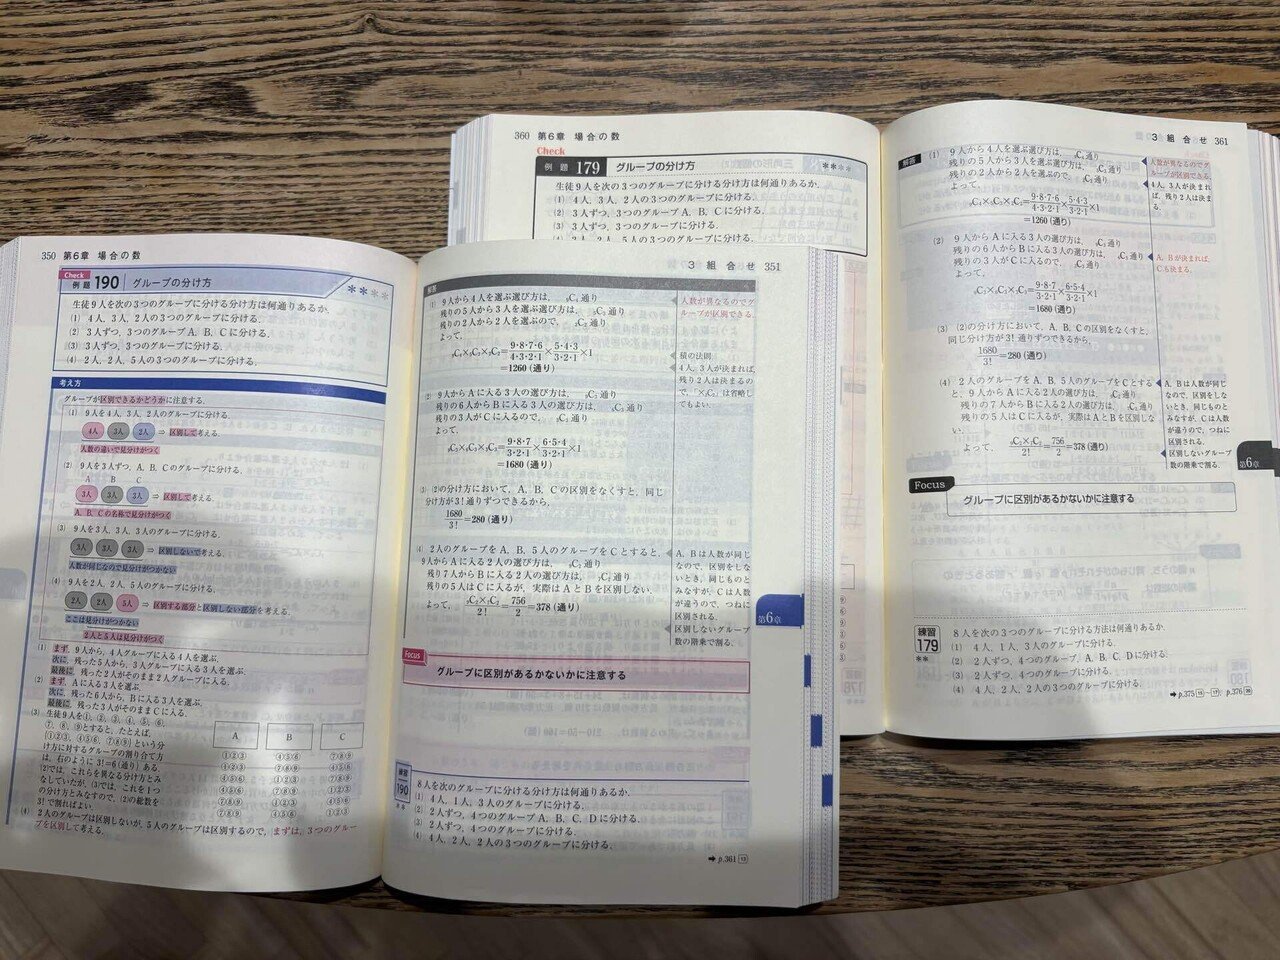 350 第6章 場合の数
Check
例題 190 グループの分け方
**
生徒9人を次の3つのグループに分ける分け方は何通りあるか.
(1) 4人, 3人, 2人の3つのグループに分ける.
(2) 3人ずつ, 3つのグループA, B, Cに分ける.
(3) 3人ずつ, 3つのグループに分ける.
(4) 2人, 2人, 5人の3つのグループに分ける.
考え方
グループが区別できるかどうかに注意する.
(1) 9人を4人, 3人, 2人のグループに分ける.
4人 3人 2人 ⇒ 区別して考える.
人数の違いで見分けがつく
(2) 9人を3人ずつ, A, B, Cのグループに分ける.
A B C
3人 3人 3人 ⇒ 区別して考える.
A, B, Cの名称で見分けがつく
(3) 9人を3人, 3人, 3人のグループに分ける.
3人 3人 3人 ⇒ 区別しないで考える.
人数が同じなので見分けがつかない
(4) 9人を2人, 2人, 5人のグループに分ける.
2人 2人 5人 ⇒ 区別する部分と区別しない部分を考える.
ここは見分けがつかない
2人と5人は見分けがつく
(1) まず, 9人から, 4人グループに入る4人を選ぶ.
次に, 残った5人から, 3人グループに入る3人を選ぶ.
最後に, 残った2人がそのまま2人グループに入る.
(2) まず, Aに入る3人を選ぶ.
次に, 残った6人から, Bに入る3人を選ぶ.
最後に, 残った3人がそのままCに入る.
(3) 生徒9人を①, ②, ③, ④, ⑤, ⑥,
⑦, ⑧, ⑨とすると, たとえば,
{①②③, ④⑤⑥, ⑦⑧⑨}という分
け方に対するグループの割り当て方
は, 右のように3!=6(通り)ある.
(2)では, これらを異なる分け方とみ
なしていたが, (3)では, これを1つ
の分け方とみなすので, (2)の総数を
3!で割ればよい.
A B C
①②③ ④⑤⑥ ⑦⑧⑨
①②③ ⑦⑧⑨ ④⑤⑥
④⑤⑥ ①②③ ⑦⑧⑨
④⑤⑥ ⑦⑧⑨ ①②③
⑦⑧⑨ ①②③ ④⑤⑥
⑦⑧⑨ ④⑤⑥ ①②③
(4) 2人のグループは区別しないが, 5人のグループは区別するので, まずは, 3つのグルー
プを区別して考える.
3 組合せ 351
解答
(1) 9人から4人を選ぶ選び方は, ₉C₄通り
残りの5人から3人を選ぶ選び方は, ₅C₃通り
残りの2人から2人を選ぶので, ₂C₂通り
よって,
₉C₄×₅C₃×₂C₂=9・8・7・6/4・3・2・1×5・4・3/3・2・1×1
=1260(通り)
人数が異なるのでグ
ループが区別できる.
積の法則
4人, 3人が決まれば,
残り2人は決まるの
で, 「×₂C₂」は省略し
てもよい.
(2) 9人からAに入る3人の選び方は, ₉C₃通り
残りの6人からBに入る3人の選び方は, ₆C₃通り
残りの3人がCに入るので, ₃C₃通り
よって,
₉C₃×₆C₃×₃C₃=9・8・7/3・2・1×6・5・4/3・2・1×1
=1680(通り)
(3) (2)の分け方において, A, B, Cの区別をなくすと, 同じ
分け方が3!通りずつできるから,
1680/3!=280(通り)
(4) 2人のグループをA, B, 5人のグループをCとすると,
9人からAに入る2人の選び方は, ₉C₂通り
残り7人からBに入る2人の選び方は, ₇C₂通り
残りの5人はCに入るが, 実際はAとBを区別しない.
よって, ₉C₂×₇C₂/2!=756/2=378(通り)
A, Bは人数が同じ
なので, 区別をしな
いとき, 同じものと
みなすが, Cは人数
が違うので, つねに
区別される.
区別しないグループ
数の階乗で割る.
第6章
Focus
グループに区別があるかないかに注意する
練習
190
**
8人を次のグループに分ける分け方は何通りあるか.
(1) 4人, 1人, 3人のグループに分ける.
(2) 2人ずつ, 4つのグループA, B, C, Dに分ける.
(3) 2人ずつ, 4つのグループに分ける.
(4) 4人, 2人, 2人の3つのグループに分ける.
➡ p.361 13
360 第6章 場合の数
Check
例題 179 グループの分け方
**
生徒9人を次の3つのグループに分ける分け方は何通りあるか.
(1) 4人, 3人, 2人の3つのグループに分ける.
(2) 3人ずつ, 3つのグループA, B, Cに分ける.
(3) 3人ずつ, 3つのグループに分ける.
(4) 2人, 2人, 5人の3つのグループに分ける.
3 組合せ 361
解答
(1) 9人から4人を選ぶ選び方は, ₉C₄通り
残りの5人から3人を選ぶ選び方は, ₅C₃通り
残りの2人から2人を選ぶので, ₂C₂通り
よって,
₉C₄×₅C₃×₂C₂=9・8・7・6/4・3・2・1×5・4・3/3・2・1×1
=1260(通り)
人数が異なるのでグ
ループが区別できる.
4人, 3人が決まれ
ば, 残り2人は決ま
る.
(2) 9人からAに入る3人の選び方は, ₉C₃通り
残りの6人からBに入る3人の選び方は, ₆C₃通り
残りの3人がCに入るので, ₃C₃通り
よって,
₉C₃×₆C₃×₃C₃=9・8・7/3・2・1×6・5・4/3・2・1×1
=1680(通り)
A, Bが決まれば,
Cも決まる.
(3) (2)の分け方において, A, B, Cの区別をなくすと,
同じ分け方が3!通りずつできるから,
1680/3!=280(通り)
(4) 2人のグループをA, B, 5人のグループをCとする
と, 9人からAに入る2人の選び方は, ₉C₂通り
残りの7人からBに入る2人の選び方は, ₇C₂通り
残りの5人はCに入るが, 実際はAとBを区別しな
い.
よって, ₉C₂×₇C₂/2!=756/2=378(通り)
A, Bは人数が同じ
なので, 区別をしな
いとき, 同じものと
みなすが, Cは人数
が違うので, つねに
区別される.
区別しないグループ
数の階乗で割る.
第6章
Focus
グループに区別があるかないかに注意する
練習
179
**
8人を次の3つのグループに分ける方法は何通りあるか.
(1) 4人, 1人, 3人のグループに分ける.
(2) 2人ずつ, 4つのグループ, A, B, C, Dに分ける.
(3) 2人ずつ, 4つのグループに分ける.
(4) 4人, 2人, 2人の3つのグループに分ける.